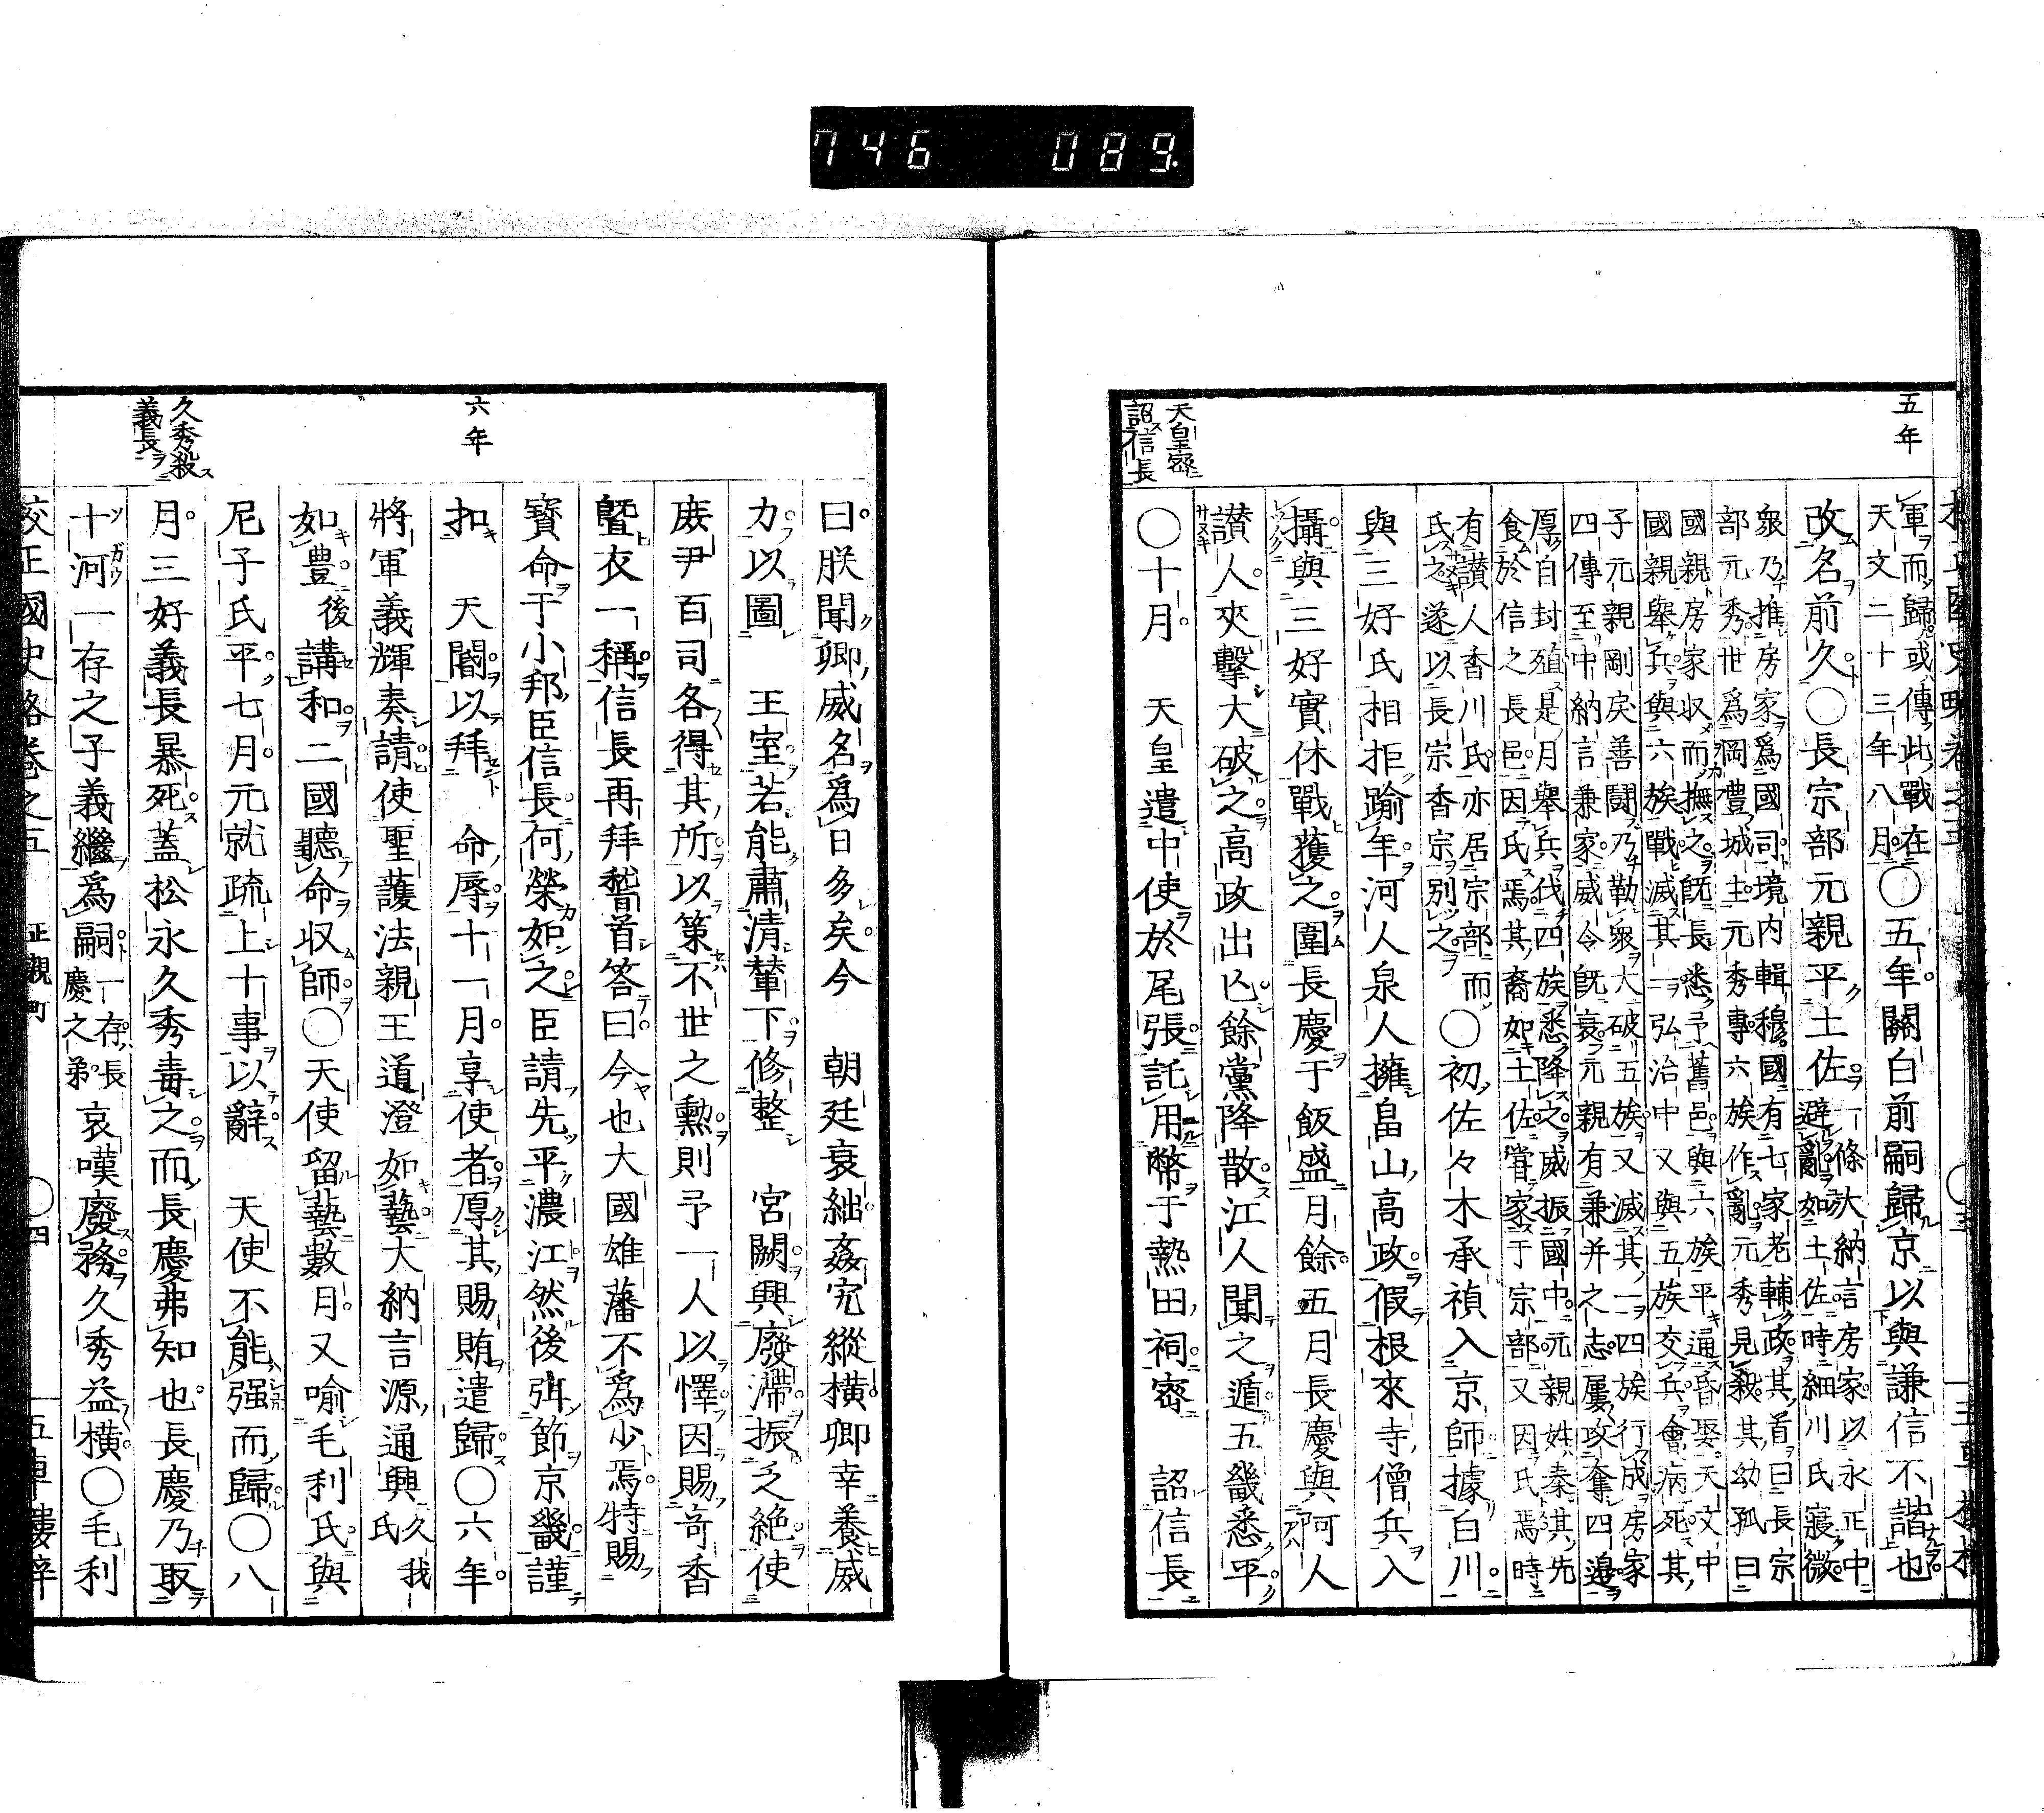 746 089.
五年
軍而歸或傳此戰在
天文二十三年八月〇五年關白前嗣歸京以與謙信不諧也
改名前久〇長宗部元親平土佐一條大納言房家以永正中
避亂如土佐時細川氏寢微
衆乃推房家爲國司境内輯穆國有七家老輔政其首曰長宗
部元秀世爲岡豊城主元秀專六族作亂元秀見殺其幼孤曰
國親房家収而撫之既長悉予舊邑與六族平通昏娶天文中
國親舉兵與六族戰滅其一弘治中又與五族交兵會病死其
子元親剛戾善鬪乃勒衆大破五族又滅其一四族行成房家
四傳至中納言兼家威令既衰元親有兼并之志屢攻奪四邊
厚自封殖是月舉兵伐四族悉降之威振國中元親姓秦其先
食於信之長邑因氏焉其裔如土佐嘗家于宗部又因氏焉時
有讃人香川氏亦居宗部而
氏之遂以長宗香宗別之〇初佐々木承禎入京師據白川
與三好氏相拒踰年河人泉人擁畠山高政假根來寺僧兵入
攝與三好實休戰獲之圍長慶于飯盛月餘五月長慶與阿人
讃人夾擊大破之高政出亾餘黨降散江人聞之遁五畿悉平
天皇密
詔信長
〇十月　天皇遣中使於尾張託用幣于熱田祠密　詔信長
曰朕聞卿威名爲日多矣今　朝廷衰絀姦宄縱横卿幸養威
力以圖　王室若能肅清輦下修整　宮闕興廢滯振乏絶使
庶尹百司各得其所以策不世之勲則予一人以懌因賜奇香
曁衣一稱信長再拜稽首答曰今也大國雄藩不爲少焉特賜
寶命于小邦臣信長何榮如之臣請先平濃江然後弭節京畿謹
扣　天閽以拜　命辱十一月享使者厚其賜賄遣歸〇六年
六年
將軍義輝奏請使聖護法親王道澄如藝大納言源通興久我
氏
如豊後講和二國聽命収師〇天使留藝數月又喻毛利氏與
尼子氏平七月元就疏上十事以辭　天使不能强而歸〇八
月三好義長暴死蓋松永久秀毒之而長慶弗知也長慶乃取
久秀殺
義長
十河一存之子義繼爲嗣一存長
慶之弟哀嘆廢務久秀益横〇毛利
校正國史略卷之五　正親町　〇四　五車樓梓